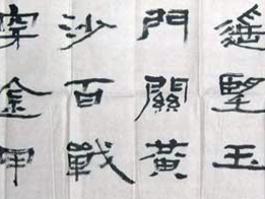 遙望玉
門關黃
沙百戰
穿金甲